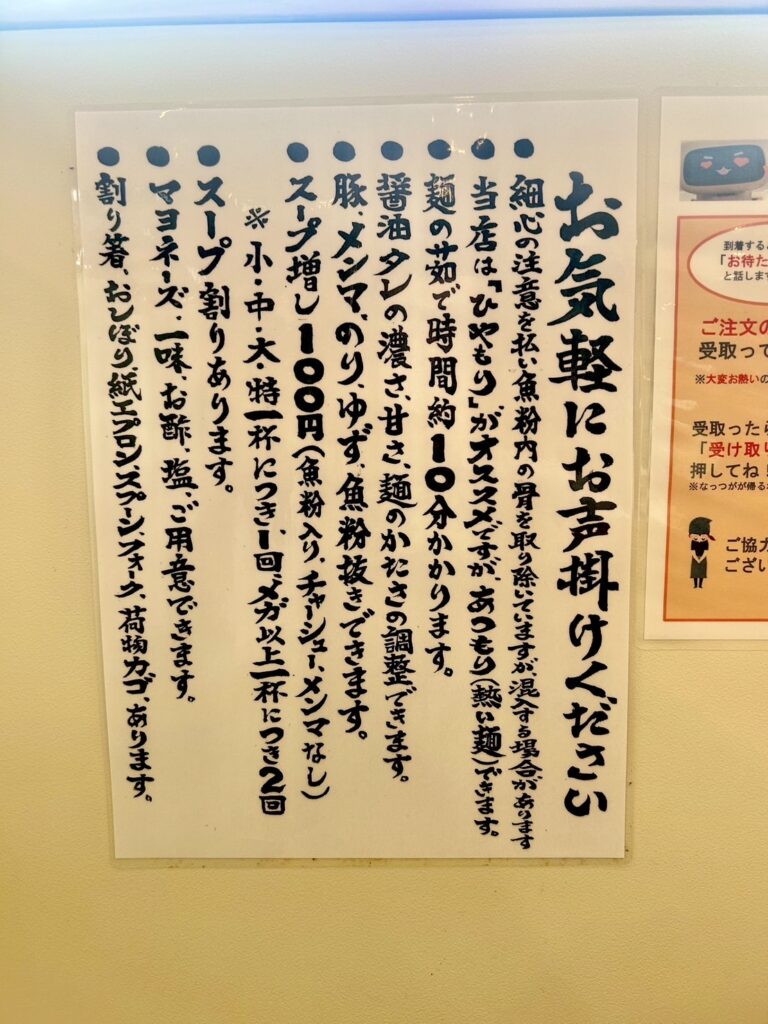 お気軽にお声掛けください
● 細心の注意を払い魚粉内の骨を取り除いていますが、混入する場合があります
● 当店は「ひやもり」がオススメですが、あつもり(熱い麺)できます。
● 麺の茹で時間約10分かかります。
● 醤油タレの濃さ、甘さ、麺のかたさの調整できます。
● 豚、メンマ、のり、ゆず、魚粉抜きできます。
● スープ増し100円(魚粉入り、チャーシュー、メンマなし)
※小・中・大・特一杯につき1回、メガ以上一杯につき2回
● スープ割りあります。
● マヨネーズ、一味、お酢、塩、ご用意できます。
● 割り箸、おしぼり、紙エプロン、スプーン、フォーク、荷物カゴ、あります。
到着すると
「お待た
と話します
ご注文の
受取って
※大変お熱いの
受取ったら
「受け取り
押してね!
※なっつがが帰る
ご協力
ござい